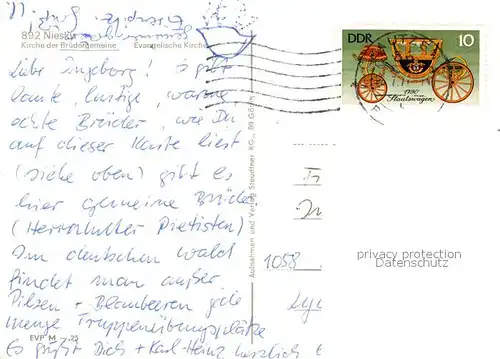 892 Niesky
Kirche der Brüdergemeine Evangelische Kirche
Liebe Ingeborg! Es gibt
laute, lustige, warme,
echte Brüder, wie Du
auf dieser Karte liest
(siehe oben) gibt es
hier gemeine Brüder
(Herrnhuter Pietisten)
Im deutschen Wald
findet man außer
Pilzen + Blaubeeren jede
menge Truppenübungsplätze
Es grüßt Dich + Karl-Heinz herzlich
EVP M -,25
Aufnahmen und Verlag Steudtner KG.,
DDR 10
1790
Staatswagen
1058
privacy protection
Datenschutz